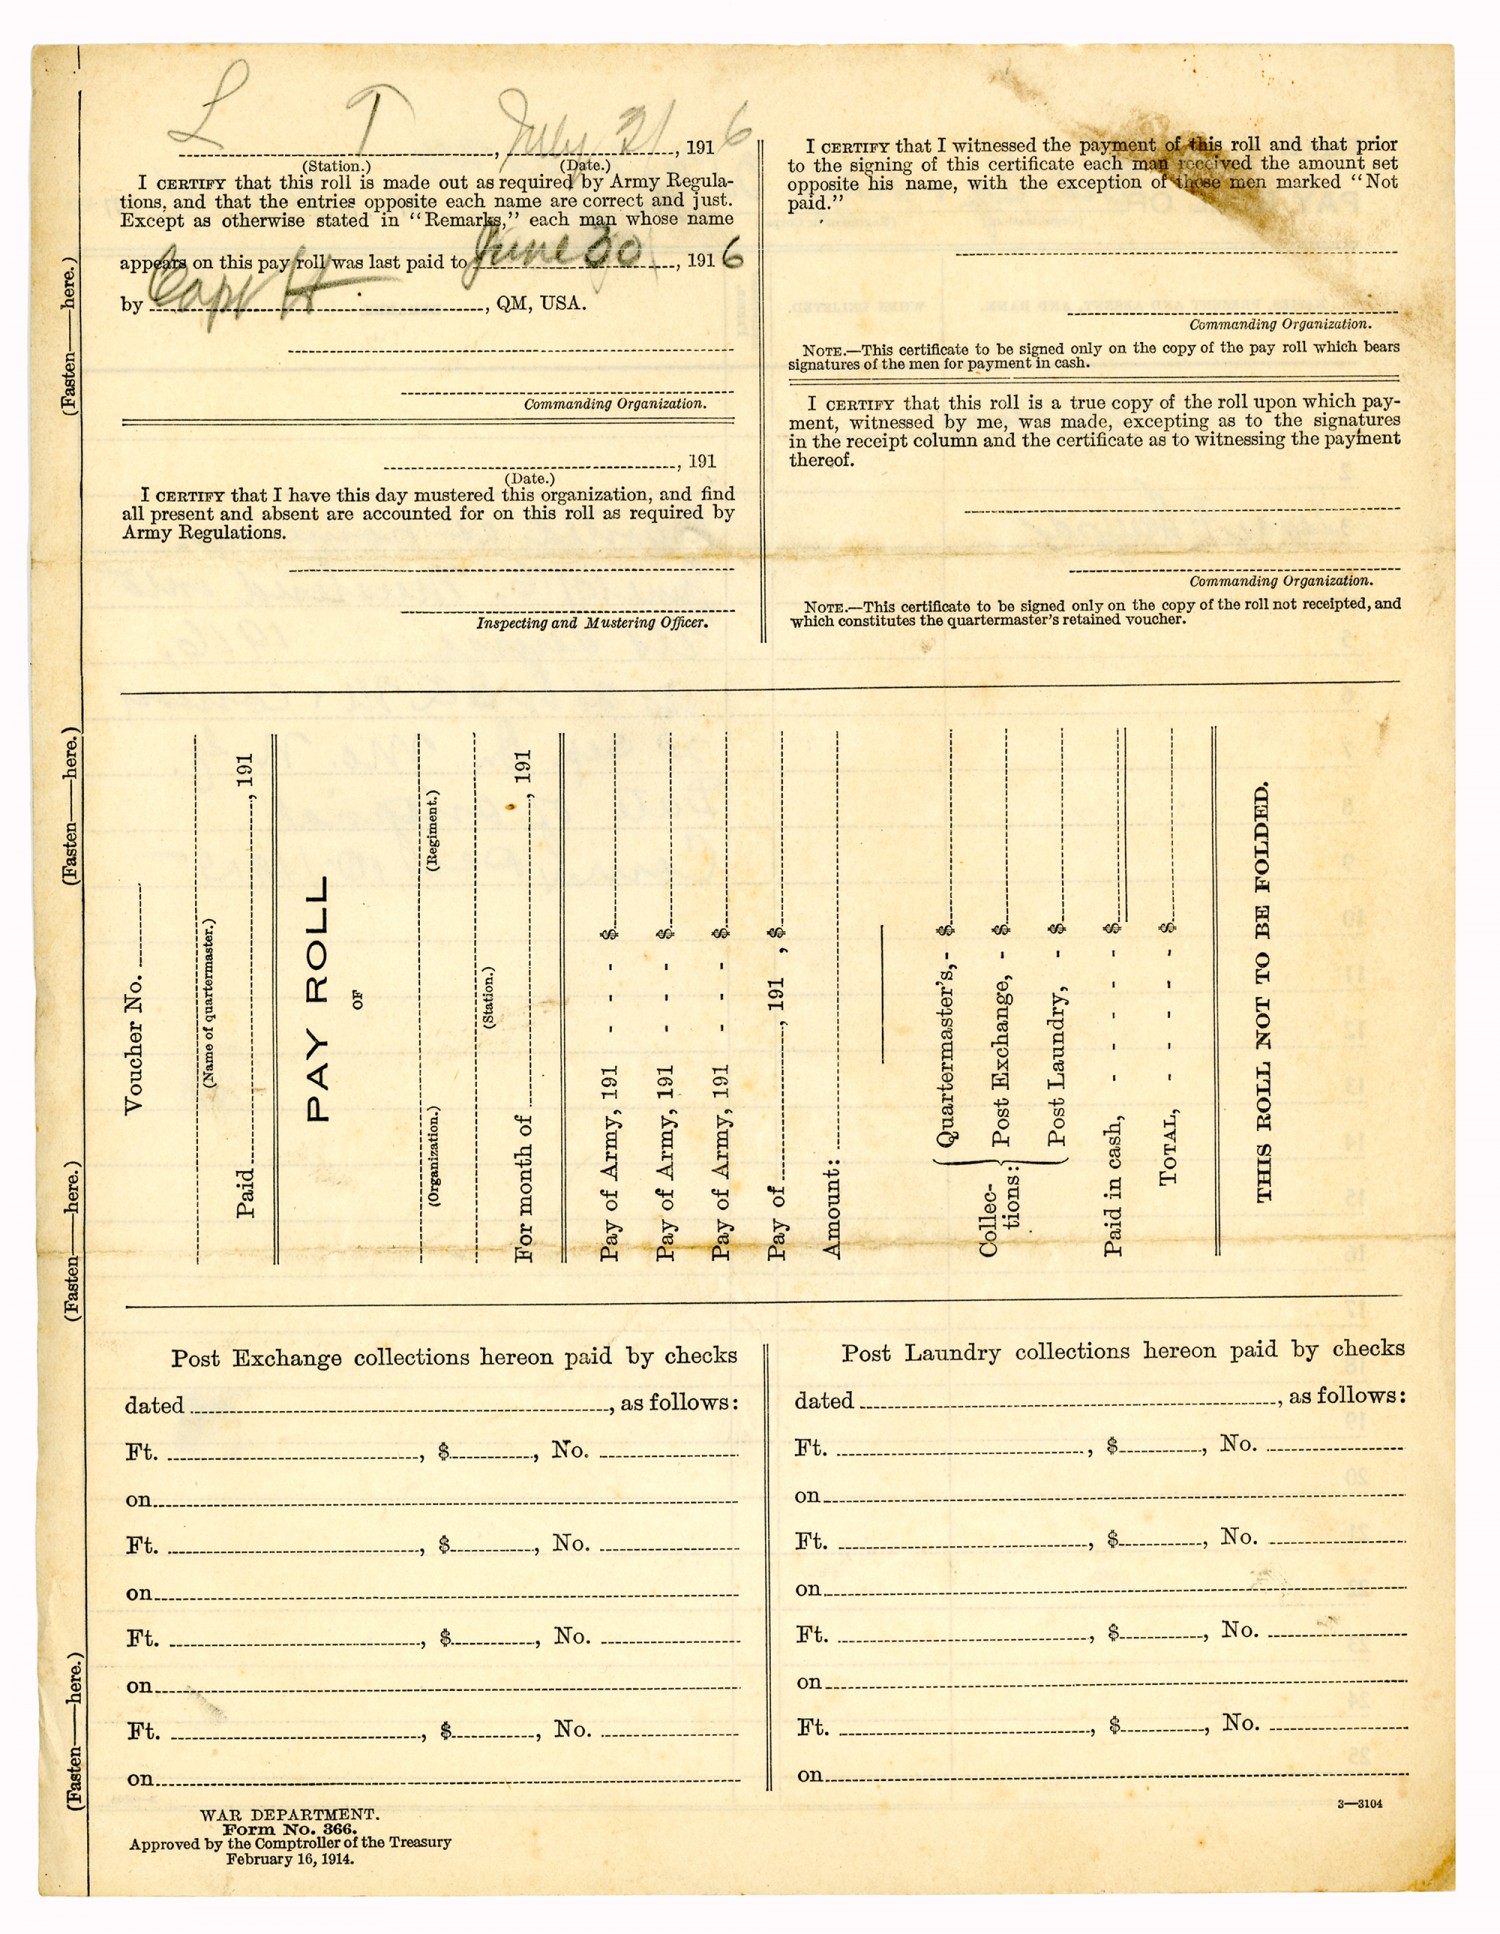 L T, July 31, 1916
(Station.) (Date.)
I CERTIFY that this roll is made out as required by Army Regula-
tions, and that the entries opposite each name are correct and just.
Except as otherwise stated in "Remarks," each man whose name
appears on this pay roll was last paid to June 30, 1916
by Capt H, QM, USA.
Commanding Organization.
, 191
(Date.)
I CERTIFY that I have this day mustered this organization, and find
all present and absent are accounted for on this roll as required by
Army Regulations.
Inspecting and Mustering Officer.
I CERTIFY that I witnessed the payment of this roll and that prior
to the signing of this certificate each man received the amount set
opposite his name, with the exception of those men marked "Not
paid."
Commanding Organization.
NOTE.—This certificate to be signed only on the copy of the pay roll which bears
signatures of the men for payment in cash.
I CERTIFY that this roll is a true copy of the roll upon which pay-
ment, witnessed by me, was made, excepting as to the signatures
in the receipt column and the certificate as to witnessing the payment
thereof.
Commanding Organization.
NOTE.—This certificate to be signed only on the copy of the roll not receipted, and
which constitutes the quartermaster's retained voucher.
(Fasten—here.)
(Fasten—here.)
(Fasten—here.)
(Fasten—here.)
Voucher No.
(Name of quartermaster.)
Paid, 191
PAY ROLL
OF
(Organization.) (Regiment.)
(Station.)
For month of, 191
Pay of Army, 191 - - - $
Pay of Army, 191 - - - $
Pay of Army, 191 - - - $
Pay of, 191 , $
Amount:
Collec-
tions:
Quartermaster's, - $
Post Exchange, - $
Post Laundry, - $
Paid in cash, - - - - $
TOTAL, - - - - $
THIS ROLL NOT TO BE FOLDED.
Post Exchange collections hereon paid by checks
dated, as follows:
Ft. , $, No.
on
Ft. , $, No.
on
Ft. , $, No.
on
Ft. , $, No.
on
Post Laundry collections hereon paid by checks
dated, as follows:
Ft. , $, No.
on
Ft. , $, No.
on
Ft. , $, No.
on
Ft. , $, No.
on
WAR DEPARTMENT.
Form No. 366.
Approved by the Comptroller of the Treasury
February 16, 1914.
3—3104